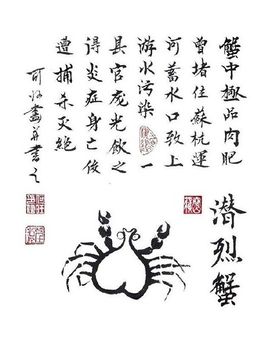 蟹中極品肉肥
曾堵住蘇杭運
河蓄水口致上
游水污染一
县官庞光飲之
得炎症身亡後
遭捕杀灭絕
可畫并書之
潜烈蟹